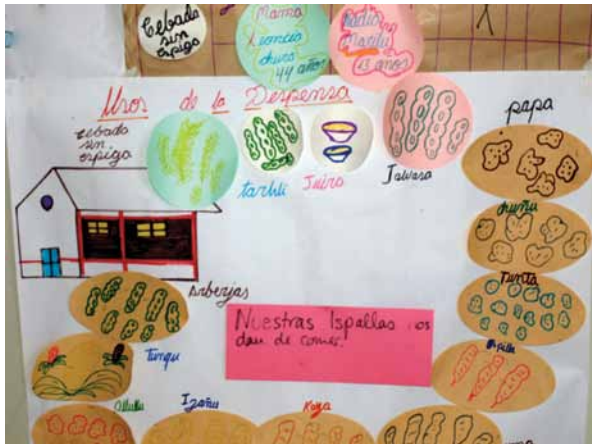 Cebada
sin
espiga
Mama
Leoncia
chura
44 años
Radio
Marilu
13 anos
Usos de la Despensa
cebada
sin
espiga
tarhli
Juira
Jawasa
papa
chuñu
Tunta
Arberjas
Tunqu
Nuestras Ispallas nos
dan de comer.
Ispilla
Ulluku
Izañu
Kaya